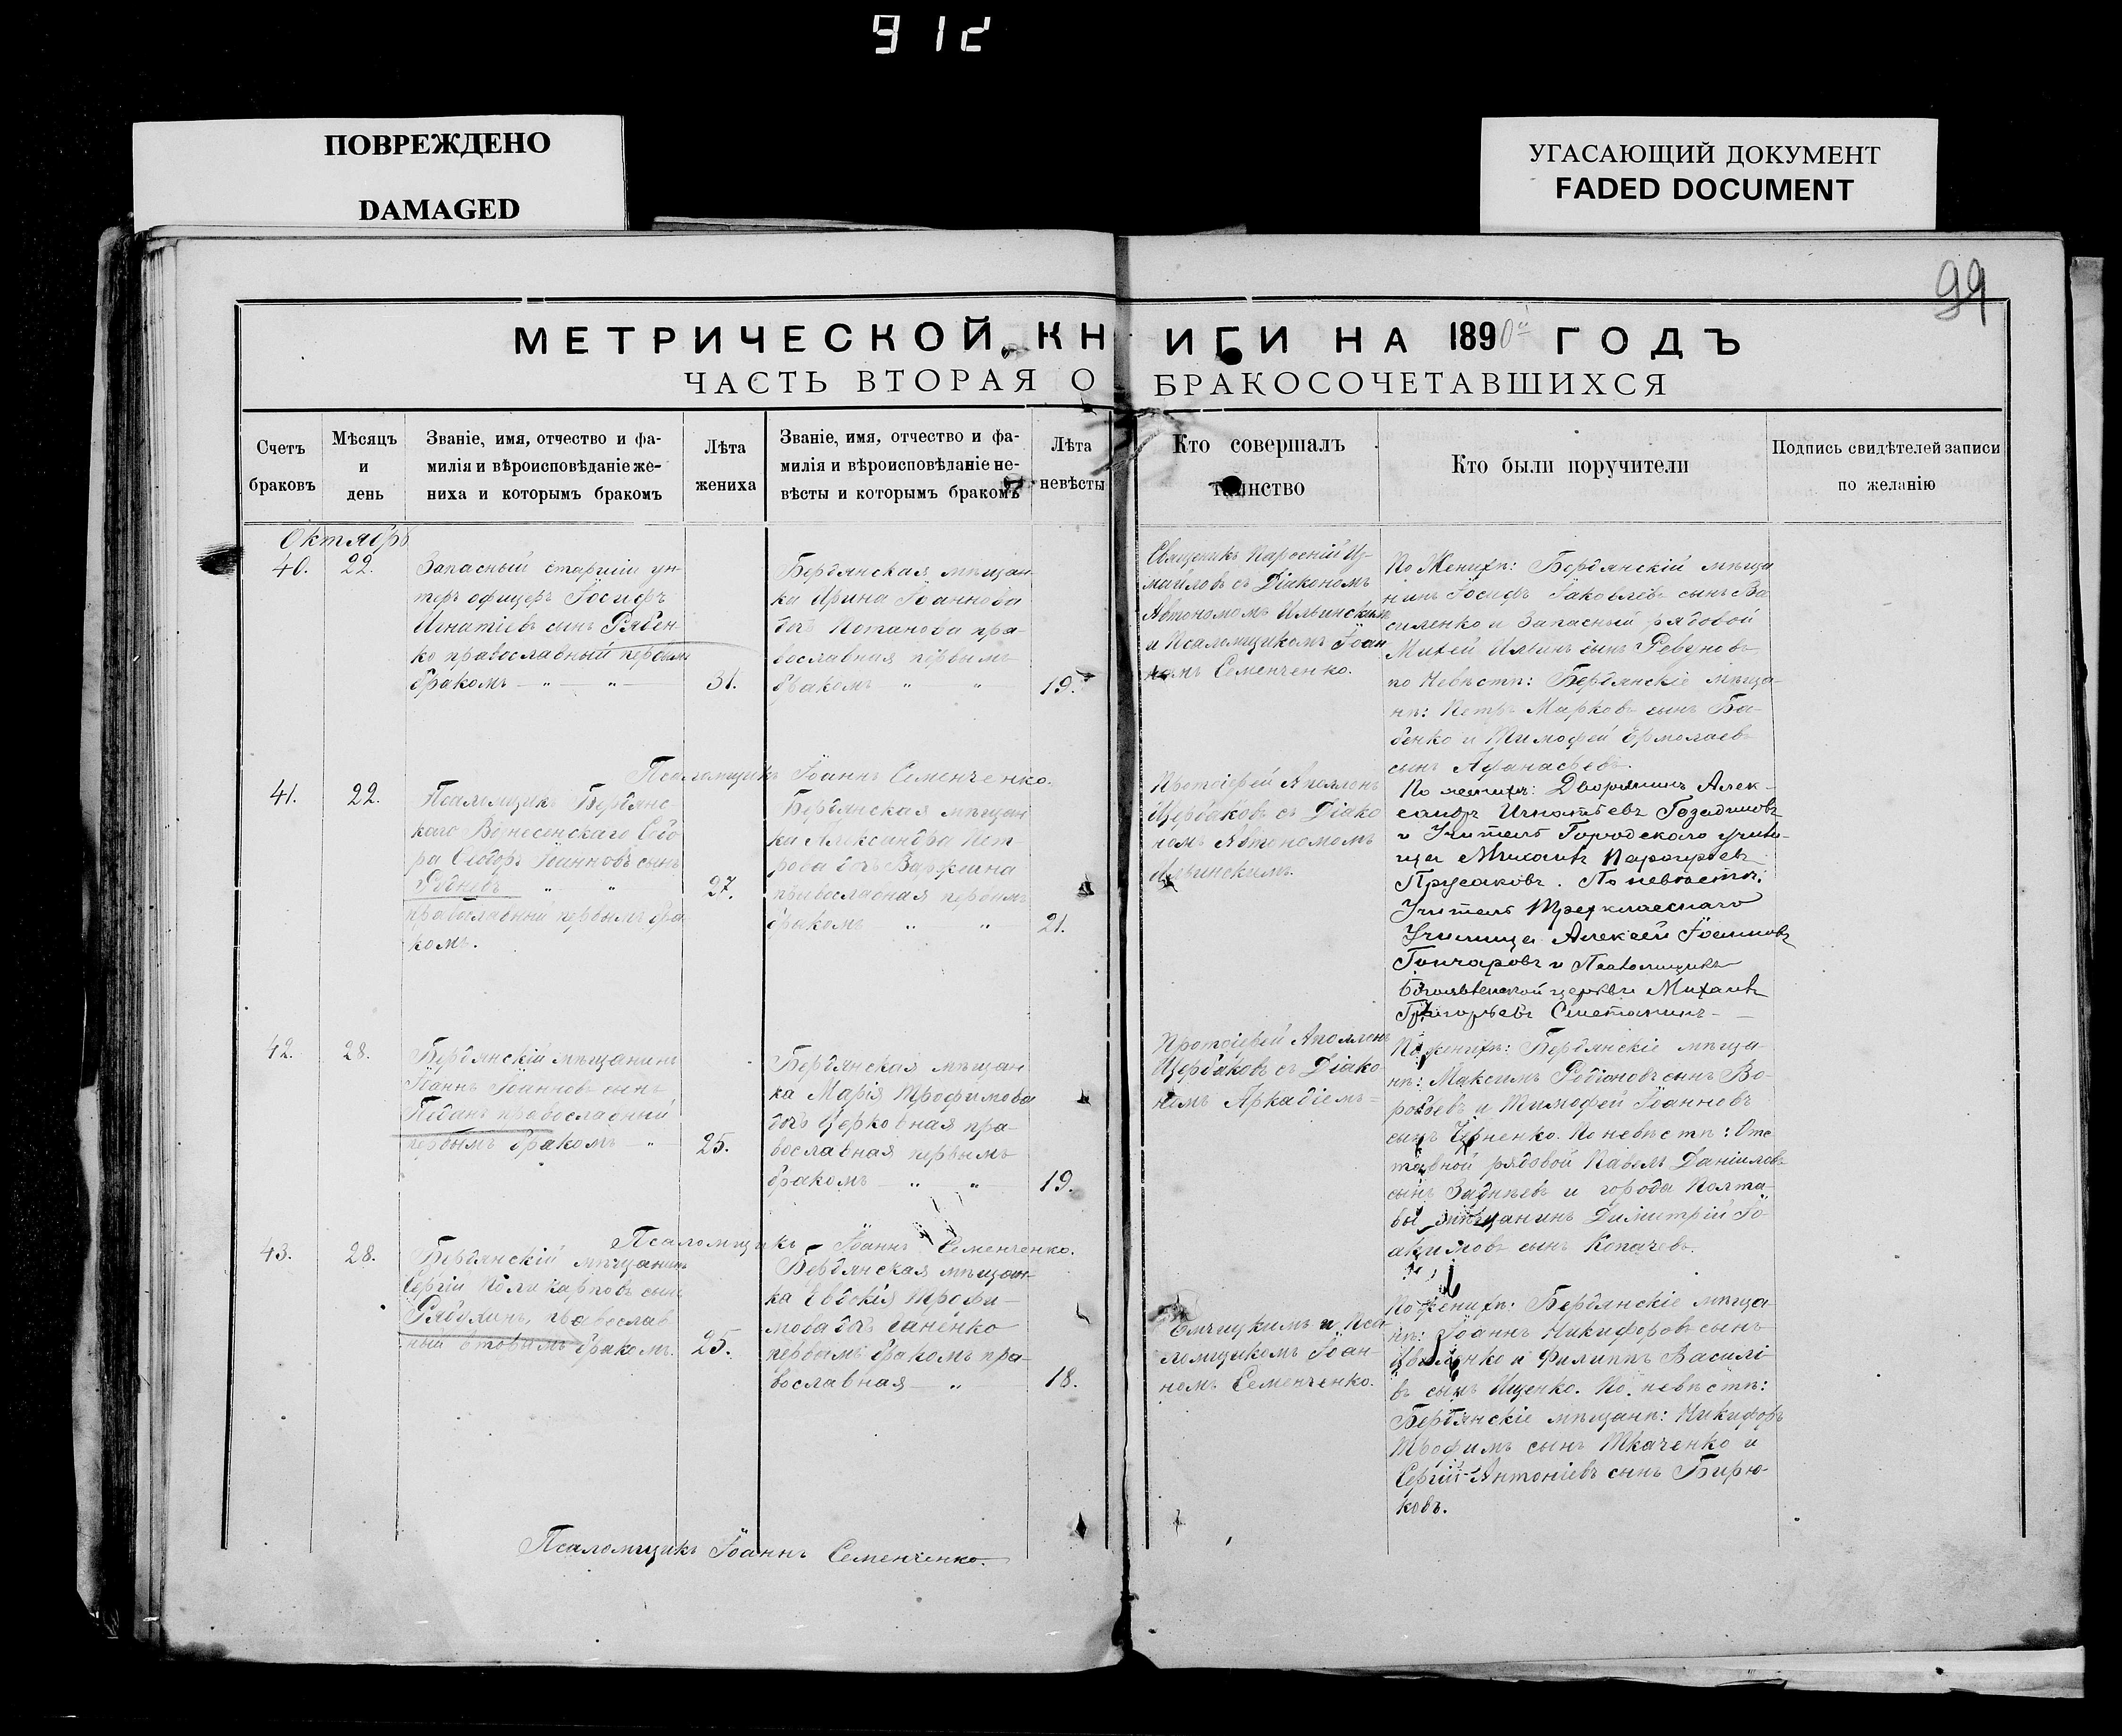 912
ПОВРЕЖДЕНО
DAMAGED
УГАСАЮЩИЙ ДОКУМЕНТ
FADED DOCUMENT
99
МЕТРИЧЕСКОЙ КНИГИ НА 1890й ГОДЪ
ЧАСТЬ ВТОРАЯ О БРАКОСОЧЕТАВШИХСЯ
Счетъ
браковъ
Мѣсяцъ
и
день
Званіе, имя, отчество и фа-
милія и вѣроисповѣданіе же-
ниха и которымъ бракомъ
Лѣта
жениха
Званіе, имя, отчество и фа-
милія и вѣроисповѣданіе не-
вѣсты и которымъ бракомъ
Лѣта
невѣсты
Кто совершалъ
таинство
Кто были поручители
Подпись свидѣтелей записи
по желанію
Октябрь
40.
22.
Запасный старшій ун-
теръ офицеръ Іосифъ
Игнатіевъ сынъ Рябен-
ко православный первымъ
бракомъ — „ — „ —
31.
Бердянская мѣщан-
ка Ирина Іоаннова
дочь Потапова пра-
вославная первымъ
бракомъ „ „
19.
Священникъ Парѳеній Из-
маиловъ съ Діакономъ
Автономомъ Ильинскимъ
и Псаломщикомъ Іоан-
номъ Семенченко.
По Женихѣ: Бердянскій мѣща
нинъ Іосифъ Іаковлевъ сынъ Ва
силенко и Запасный рядовой
Михей Ильинъ сынъ Ревуновъ
по Невѣстѣ: Бердянскіе мѣща-
нѣ: Петръ Марковъ сынъ Ба-
бенко и Тимофей Ермолаевъ
сынъ Афанасьевъ.
Псаломщикъ Іоаннъ Семенченко.
41.
22.
Псаломщикъ Бердянс-
каго Вознесенскаго Собо
ра Ѳеодоръ Іоанновъ сынъ
Рудневъ „ „
православный первымъ бра
комъ.
27.
Бердянская мѣщан
ка Александра Пет-
рова дочь
православная первымъ
бракомъ — „ — „ —
21.
Протоіерей Аполлонъ
Щербаковъ съ Діако
номъ Автономомъ
Ильинскимъ.
По женихѣ: Дворянинъ Алек-
сандръ Игнатьевъ Гозадиновъ
и Учитель Городскаго учили-
ща Михаилъ
Прусаковъ. По невѣстѣ:
Учитель Трехкласснаго
Училища Алексѣй Іоанновъ
Гончаровъ и Псаломщикъ
церкви Михаилъ
Григорьевъ Сметанинъ —
42.
28.
Бердянскій мѣщанинъ
Іоаннъ Іоанновъ сынъ
православный
первымъ бракомъ — „
25.
Бердянская мѣщан
ка Марія Трофимова
дочь Церковная пра-
вославная первымъ
бракомъ — „ — „ —
19.
Протоіерей Аполлонъ
Щербаковъ съ Діако-
номъ Аркадіемъ =
По женихѣ: Бердянскіе мѣща-
нѣ: Максимъ Родіоновъ сынъ Во-
робьевъ и Тимофей Іоанновъ
сынъ Черненко. По невѣстѣ: Отс
тавной рядовой Павелъ Даниловъ
сынъ Заднѣевъ и города Полта-
вы мѣщанинъ Димитрій Іо-
акимовъ сынъ Копачевъ.
Псаломщикъ Іоаннъ Семенченко.
43.
28.
Бердянскій мѣщанинъ
Сергій Поликарповъ сынъ
Рябухинъ, православ
ный вторымъ бракомъ.
25.
Бердянская мѣщан-
ка Евдокія Трофи-
мова дочь
первымъ бракомъ пра-
вославная — „
18.
и Пса-
ломщикомъ Іоан-
номъ Семенченко.
По женихѣ: Бердянскіе мѣща-
нѣ: Іоаннъ Никифоровъ сынъ
и Филиппъ Василі-
въ сынъ Ищенко. По невѣстѣ:
Бердянскіе мѣщанѣ: Никифоръ
Трофимъ сынъ Ткаченко и
Сергій Антоніевъ сынъ Бирю-
ковъ.
Псаломщикъ Іоаннъ Семенченко.